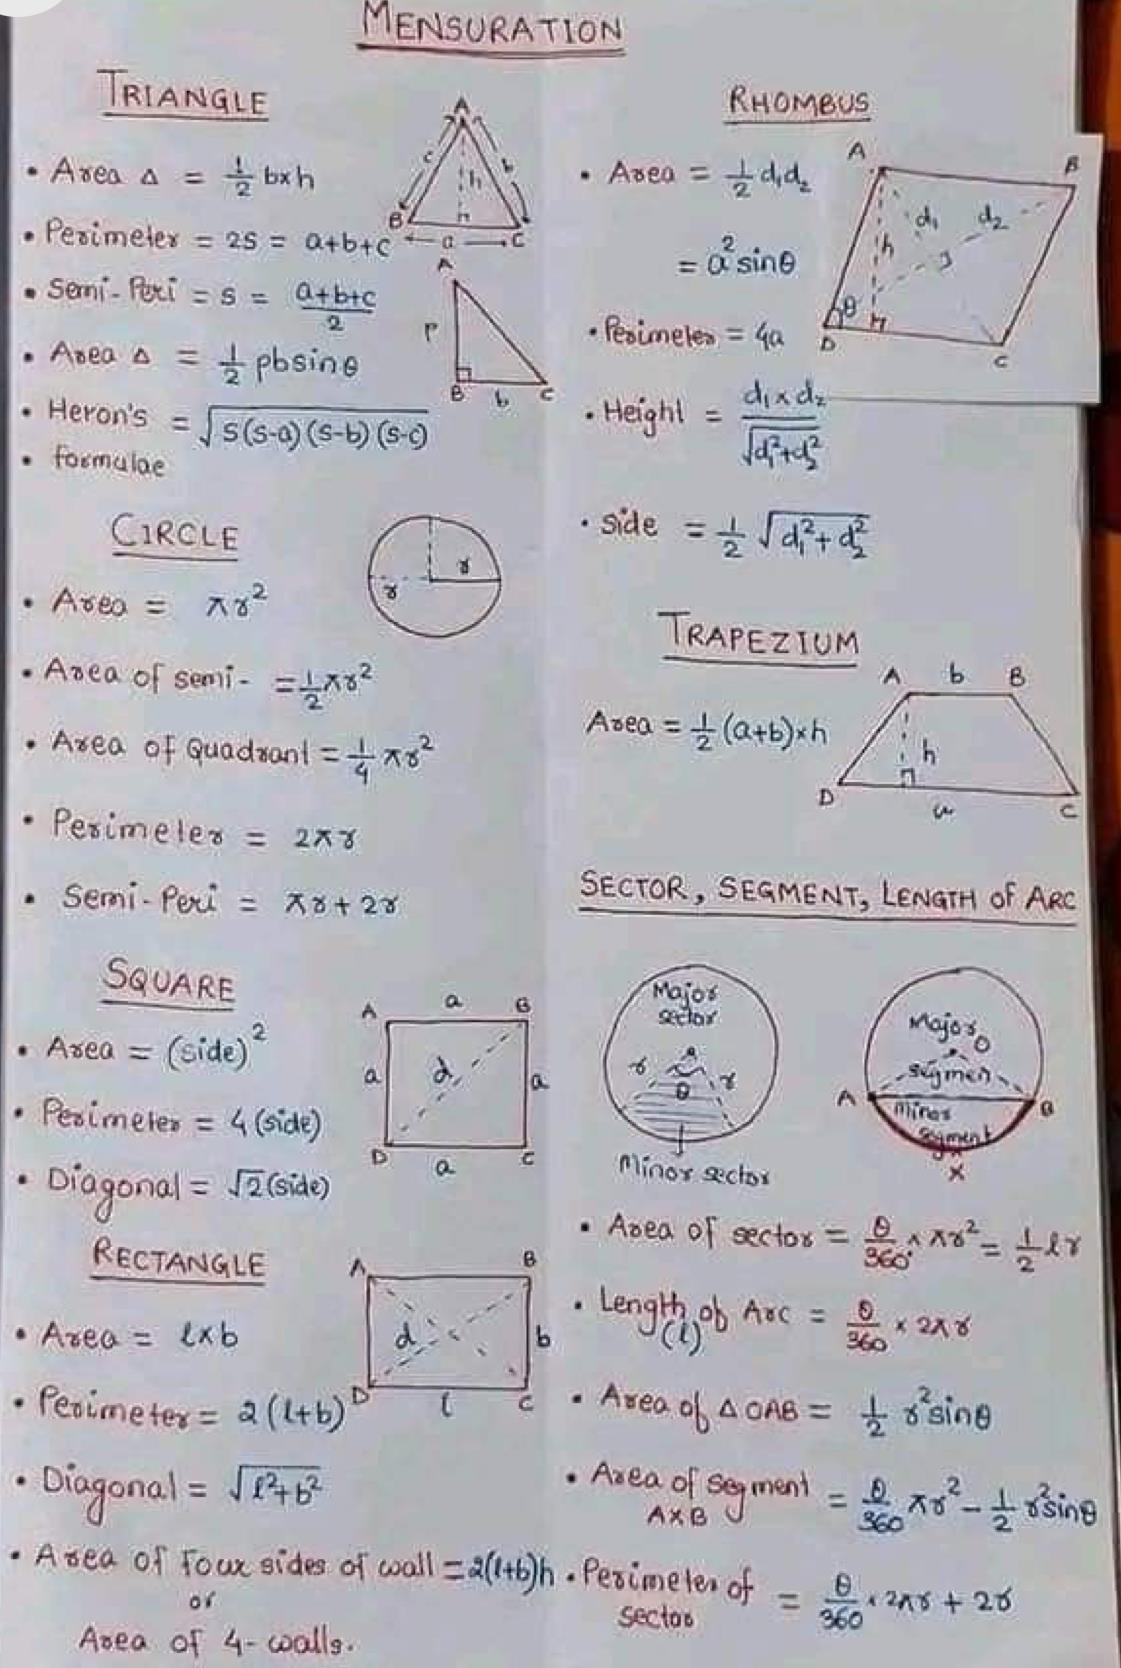 MENSURATION
TRIANGLE
• Area Δ = 1/2 b×h
• Perimeter = 2s = a+b+c
• Semi-Peri = s = (a+b+c)/2
• Area Δ = 1/2 pb sinθ
• Heron's = √s(s-a)(s-b)(s-c)
• formulae
A
c
b
h
B
a
C
A
P
B
b
C
CIRCLE
• Area = πr²
• Area of semi- = 1/2 πr²
• Area of Quadrant = 1/4 πr²
• Perimeter = 2πr
• Semi-Peri = πr + 2r
r
r
SQUARE
• Area = (side)²
• Perimeter = 4(side)
• Diagonal = √2(side)
A
a
B
a
d
a
D
a
C
RECTANGLE
• Area = l×b
• Perimeter = 2(l+b)
• Diagonal = √l²+b²
• Area of four sides of wall = 2(l+b)h
or
Area of 4-walls.
A
B
d
b
D
l
C
RHOMBUS
• Area = 1/2 d₁d₂
= a² sinθ
• Perimeter = 4a
• Height = (d₁×d₂)/√d₁²+d₂²
• side = 1/2 √d₁²+d₂²
A
B
d₁
d₂
h
θ
D
C
TRAPEZIUM
Area = 1/2 (a+b)×h
A
b
B
h
D
a
C
SECTOR, SEGMENT, LENGTH of ARC
Major
sector
r
r
θ
Minor sector
Major
O
segmen
A
B
Minor
segment
X
• Area of sector = θ/360° × πr² = 1/2 lr
• Length of Arc = θ/360 × 2πr
(l)
• Area of Δ OAB = 1/2 r² sinθ
• Area of segment = θ/360 πr² - 1/2 r² sinθ
AXB
• Perimeter of = θ/360 × 2πr + 2r
sector